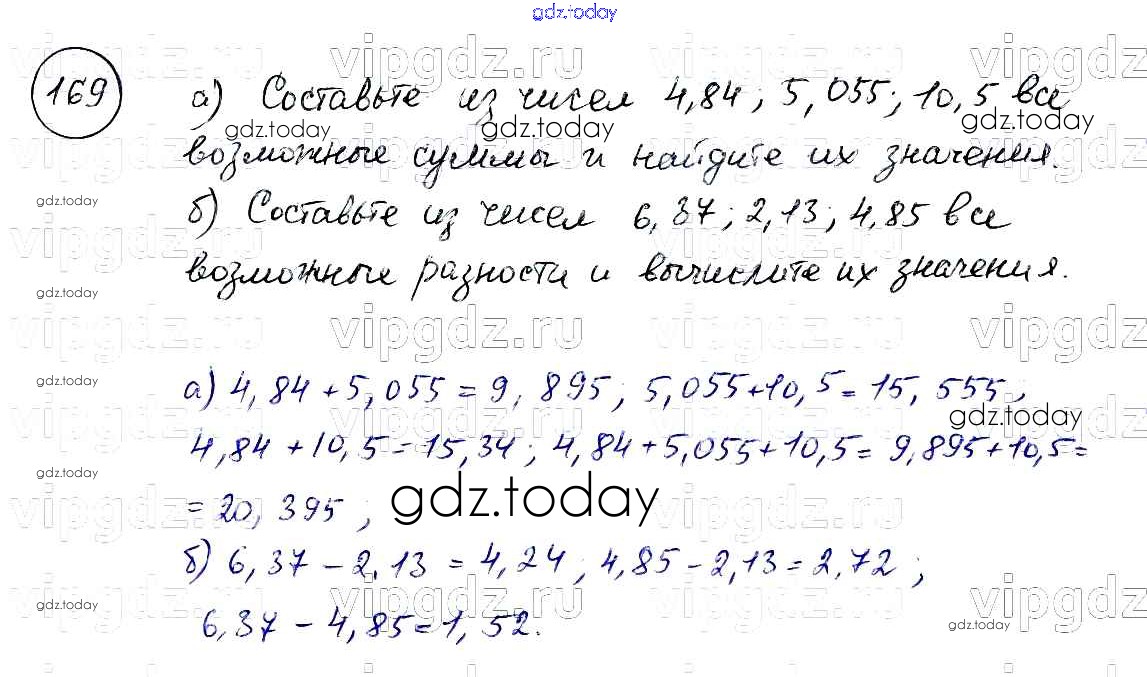 gdz.today
vipgdz.ru vipgdz.ru
169 а) Составьте из чисел 4,84; 5,055; 10,5 все
gdz.today gdz.today gdz.today
возможные суммы и найдите их значения.
gdz.today
б) Составьте из чисел 6,37; 2,13; 4,85 все
vipgdz.ru vipgdz.ru
возможные разности и вычислите их значения.
gdz.today
vipgdz.ru vipgdz.ru
а) 4,84 + 5,055 = 9,895; 5,055 + 10,5 = 15,555;
gdz.today
gdz.today
4,84 + 10,5 = 15,34; 4,84 + 5,055 + 10,5 = 9,895 + 10,5 =
gdz.today
= 20,395;
gdz.today
vipgdz.ru vipgdz.ru
б) 6,37 - 2,13 = 4,24; 4,85 - 2,13 = 2,72;
gdz.today
vipgdz.ru vipgdz.ru
6,37 - 4,85 = 1,52.
gdz.today